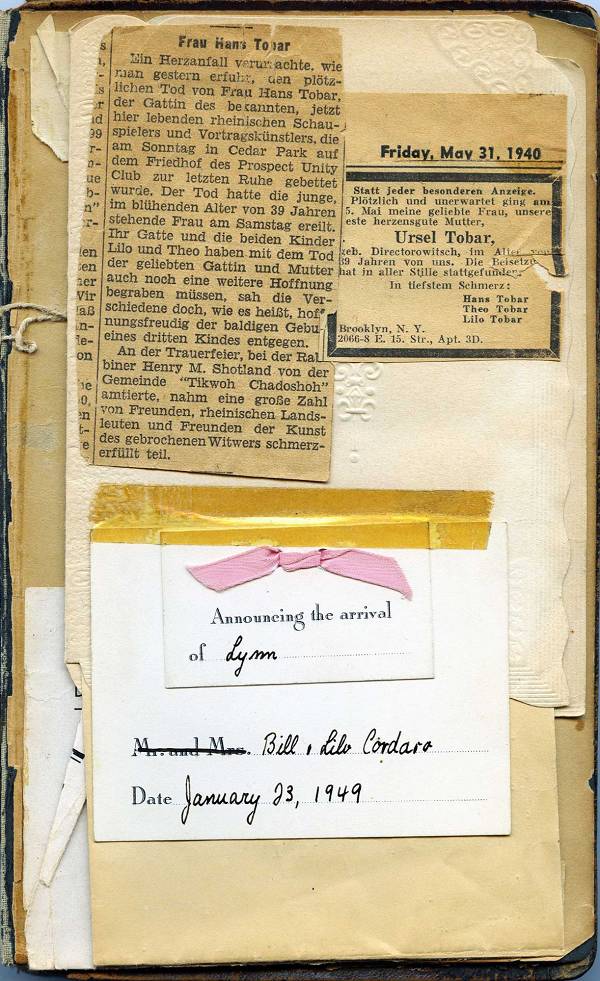 Frau Hans Tobar
Ein Herzanfall verursachte, wie
man gestern erfuhr, den plötz-
lichen Tod von Frau Hans Tobar,
der Gattin des bekannten, jetzt
hier lebenden rheinischen Schau-
spielers und Vortragskünstlers, die
am Sonntag in Cedar Park auf
dem Friedhof des Prospect Unity
Club zur letzten Ruhe gebettet
wurde. Der Tod hatte die junge,
im blühenden Alter von 39 Jahren
stehende Frau am Samstag ereilt.
Ihr Gatte und die beiden Kinder
Lilo und Theo haben mit dem Tod
der geliebten Gattin und Mutter
auch noch eine weitere Hoffnung
begraben müssen, sah die Ver-
schiedene doch, wie es heißt, hof
nungsfreudig der baldigen Gebu
eines dritten Kindes entgegen.
An der Trauerfeier, bei der Rab
biner Henry M. Shotland von der
Gemeinde "Tikwoh Chadoshoh"
amtierte, nahm eine große Zahl
von Freunden, rheinischen Lands-
leuten und Freunden der Kunst
des gebrochenen Witwers schmerz-
erfüllt teil.
Friday, May 31, 1940
Statt jeder besonderen Anzeige.
Plötzlich und unerwartet ging am
5. Mai meine geliebte Frau, unsere
este herzensgute Mutter,
Ursel Tobar,
geb. Directorowitsch, im Alter von
39 Jahren von uns. Die Beisetz
hat in aller Stille stattgefunden.
In tiefstem Schmerz:
Hans Tobar
Theo Tobar
Lilo Tobar
Brooklyn, N. Y.
2066-8 E. 15. Str., Apt. 3D.
Announcing the arrival
of Lynn
Mr. and Mrs. Bill & Lilo Cordaro
Date January 23, 1949